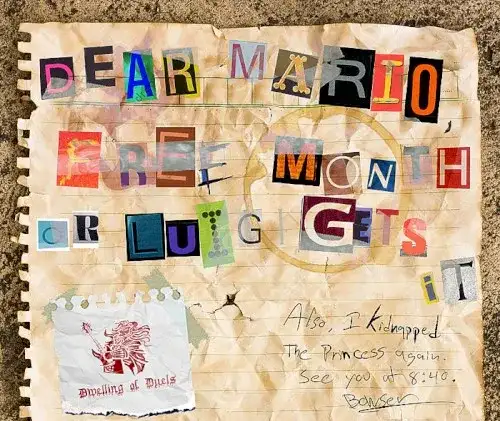 DEAR MARIO
FREE MONTH
OR LUIGI GETS
iT
Also, I kidnapped
The Princess again.
See you at 8:40.
Bowser
Dwelling of Duels